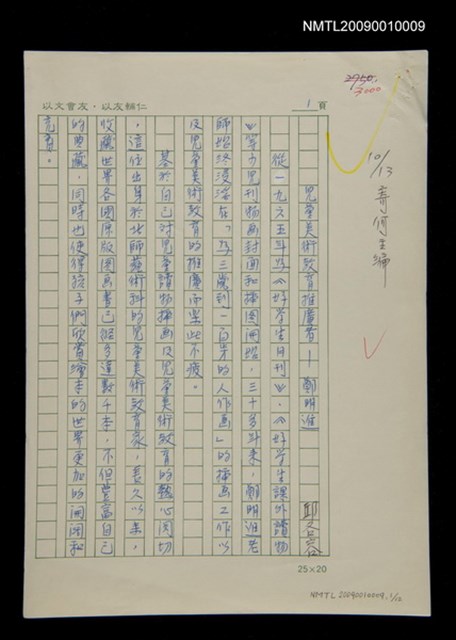 NMTL20090010009
以文會友・以友輔仁
1頁
2950
3000
10/13 寄何主編
兒童美術教育推廣者—鄭明進
邱各容
從一九六五年為《好學生月刊》、《好學生課外讀物
》等少兒刊物畫封面和插圖開始,三十多年來,鄭明進老
師始終浸淫在「為三歲到一百歲的人作畫」的插畫工作以
及兒童美術教育的推廣而樂此不疲。
基於自己對兒童讀物插畫及兒童美術教育的熱心關切
,這位出身於北師藝術科的兒童美術教育家,長久以來,
收藏世界各國原版圖畫書已經多達數千本,不但豐富自己
的典藏,同時也使得孩子們欣賞繪本的世界更加的開闊和
充實。
25×20
NMTL20090010009, 1/12